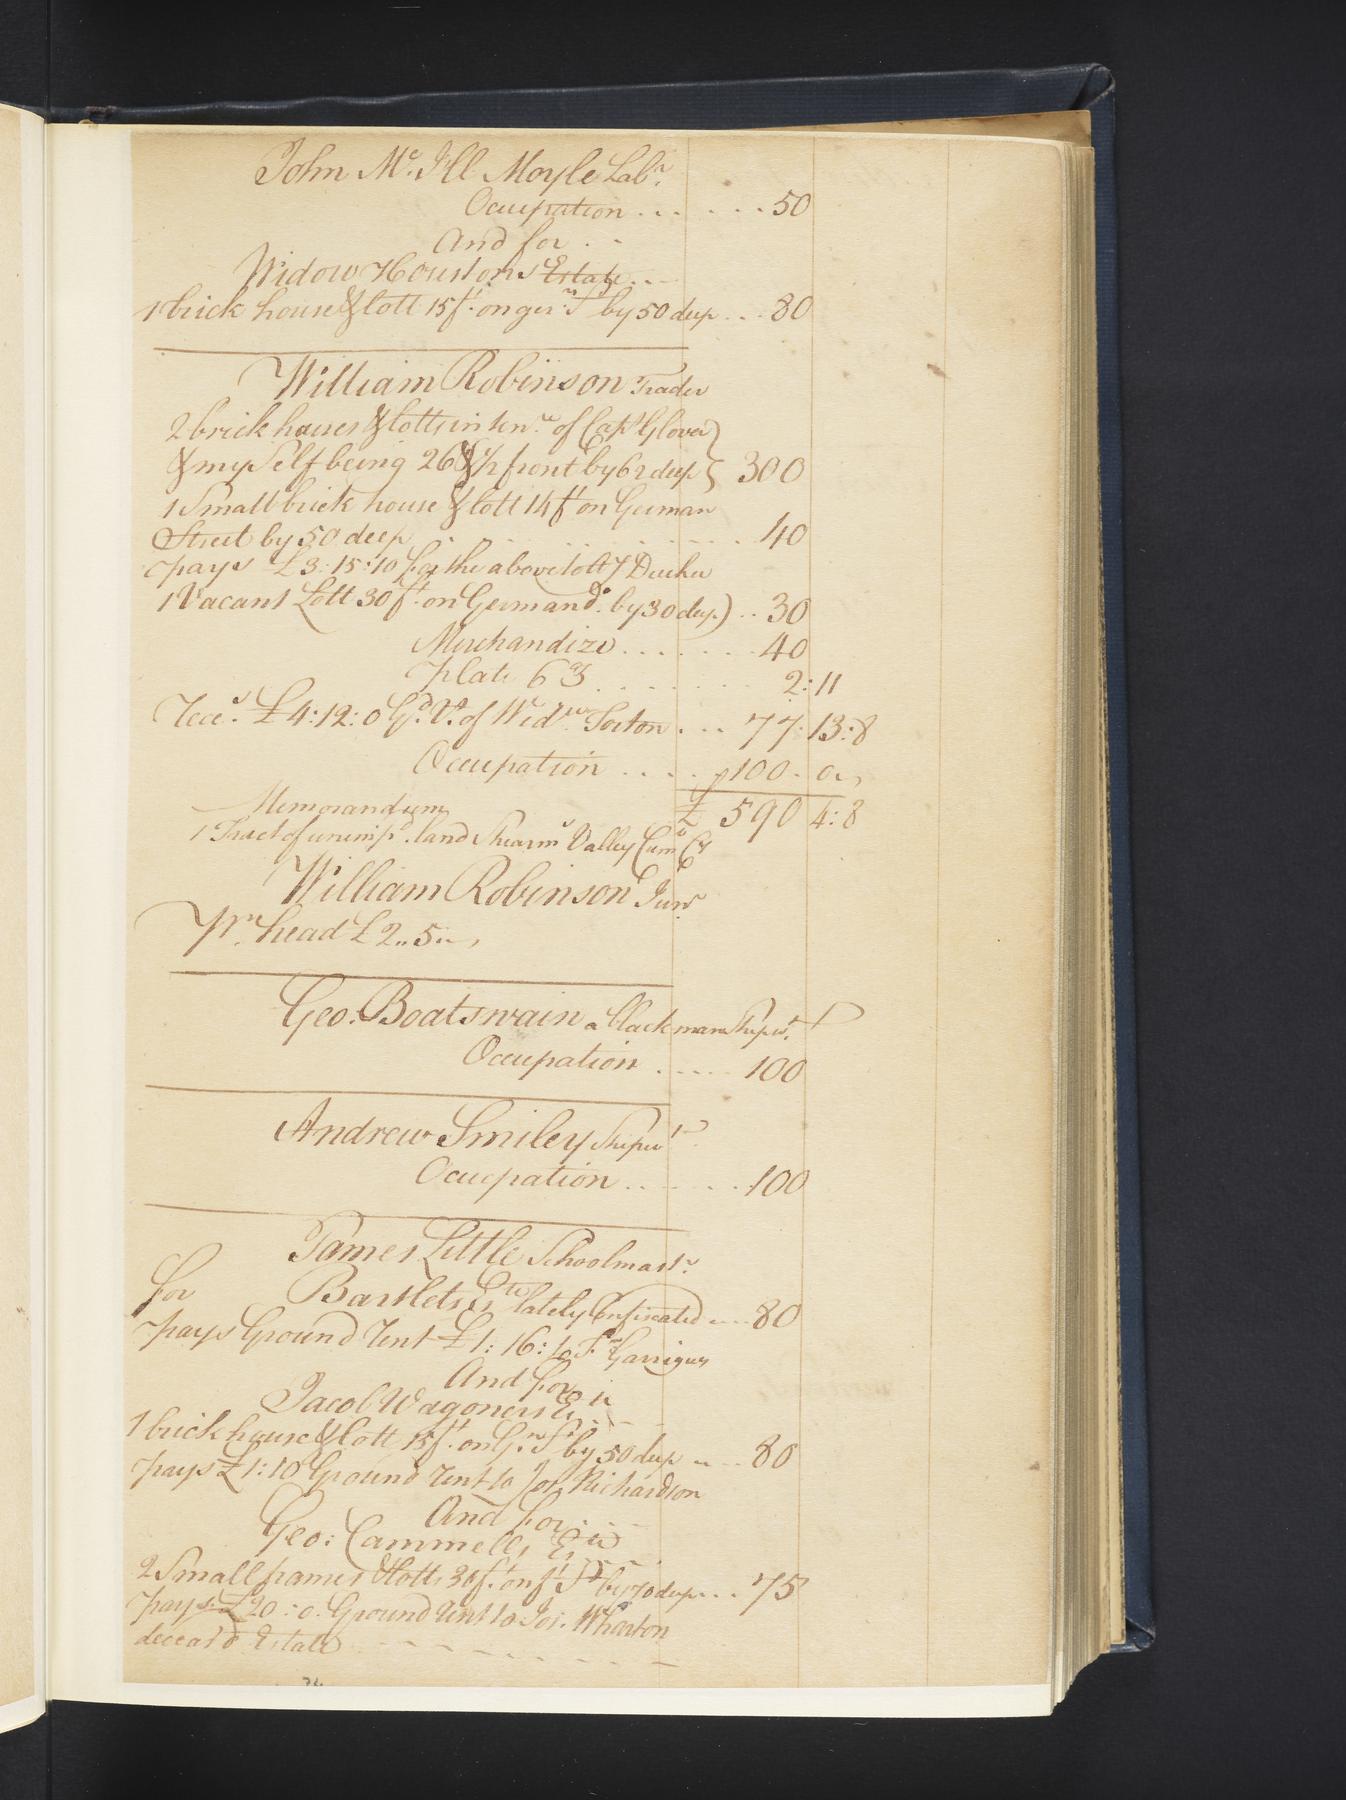 John Mc. Ill Moyle Labr.
Occupation . . . . . . 50
And for . .
Widow Houstons Estate . . .
1 brick house & lott 15ft. on gern. St by 50 deep . . . 80
William Robinson Trader
2 brick houses & lotts in tenre of Capt Glover
& my Self being 26 & ½ front by 62 deep } 300
1 Small brick house & lott 14ft on German
Street by 50 deep . . . . . . . 40
pays £3:15:10 for the above lott
1 Vacant Lott 30ft. on German do. by 30 deep) . . 30
Merchandize . . . . . . . 40
Plate 6 ℥ . . . . . . 2:11
Rece.s £4:12:0 Gd. Rt. of Widw . . . 77:13:8
Occupation . . . . . 100 . 0 . .
£ 590 4:8
Memorandum
1 Tract of unimpd. land Shearms Valley Cum Cy
William Robinson Junr
Pr. head £2..5..
Geo. Boatswain a black man Shipwt.
Occupation . . . . . 100
Andrew Smiley Shipwt
Occupation . . . . . . 100
James Little Schoolmastr.
for Bartlets Este lately Confiscated . . . 80
pays Ground Rent £1:16: to Garrigues
And for
Jacob Wagoners Es
1 brick house & lott 15ft. on Gn. St by 50 deep . . . 80
pays £1:10 Ground Rent to Jos. Richardson
And for . . .
Geo: Cammells Es
2 Small frames & lotts 30ft. on St by 70 deep . . . 75
pays £20:0. Ground Rent to Jos. Wharton
deceasd Estate